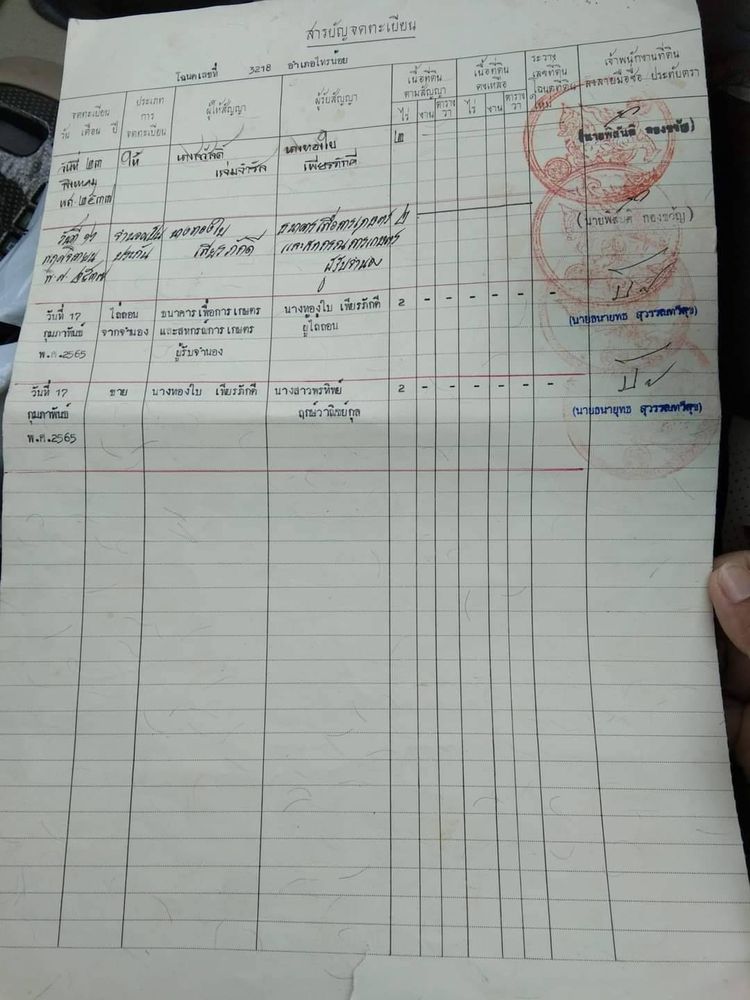 สารบัญจดทะเบียน
โฉนดเลขที่ 3218 อำเภอไทรน้อย
จดทะเบียน วัน เดือน ปี
ประเภทการจดทะเบียน
ผู้ให้สัญญา
ผู้รับสัญญา
เนื้อที่ดินตามสัญญา
ไร่ งาน ตารางวา
เนื้อที่ดินคงเหลือ
ไร่ งาน ตารางวา
ระวาง เลขที่ดิน โฉนดที่ดินใหม่
เจ้าพนักงานที่ดิน ลงลายมือชื่อ ประทับตรา
วันที่ ๒๓ ให้ แจ่มจำรัส นางทองใบ ๒
สิงหาคม เพียรภักดี
พศ ๒๕๓๗
วันที่ จำนองเป็น นางทองใบ ธนาคารเพื่อการเกษตร ๒
พฤศจิกายน ประกัน เพียรภักดี และสหกรณ์การเกษตร
พ.ศ. ๒๕๓๗ ผู้รับจำนอง
วันที่ 17 ไถ่ถอน ธนาคารเพื่อการเกษตร นางทองใบ เพียรภักดี 2 - - - - - -
กุมภาพันธ์ จากจำนอง และสหกรณ์การเกษตร ผู้ไถ่ถอน
พ.ศ.2565 ผู้รับจำนอง
(นายธนายุทธ สุวรรณทวีสุข)
วันที่ 17 ขาย นางทองใบ เพียรภักดี นางสาวพรทิพย์ 2 - - - - - -
กุมภาพันธ์ ฤกษ์วาณิชย์กุล
พ.ศ.2565
(นายธนายุทธ สุวรรณทวีสุข)